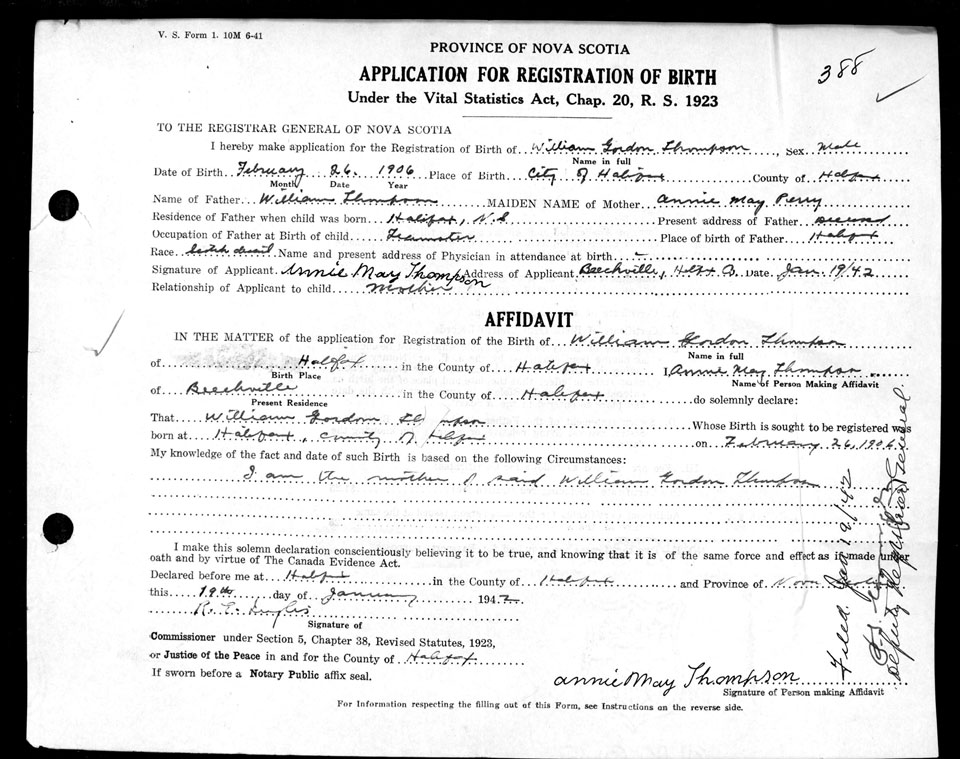 V. S. Form 1. 10M 6-41
388
PROVINCE OF NOVA SCOTIA
APPLICATION FOR REGISTRATION OF BIRTH
Under the Vital Statistics Act, Chap. 20, R. S. 1923
TO THE REGISTRAR GENERAL OF NOVA SCOTIA
I hereby make application for the Registration of Birth of William Gordon Thompson, Sex Male
Name in full
Date of Birth February 26. 1906 Place of Birth City of Halifax County of Halifax
Month Date Year
Name of Father William Thompson MAIDEN NAME of Mother Annie May Perry
Residence of Father when child was born Halifax, N.S Present address of Father
Occupation of Father at Birth of child Teamster Place of birth of Father Halifax
Race Name and present address of Physician in attendance at birth -
Signature of Applicant Annie May Thompson Address of Applicant Beechville, Hfx Co. Date Jan. 19/42
Relationship of Applicant to child mother
AFFIDAVIT
IN THE MATTER of the application for Registration of the Birth of William Gordon Thompson
Name in full
of Halifax in the County of Halifax I, Annie May Thompson
Birth Place Name of Person Making Affidavit
of Beechville in the County of Halifax do solemnly declare:
Present Residence
That William Gordon Thompson Whose Birth is sought to be registered was
born at Halifax, County of Halifax on February 26, 1906
My knowledge of the fact and date of such Birth is based on the following Circumstances:
I am the mother of said William Gordon Thompson
I make this solemn declaration conscientiously believing it to be true, and knowing that it is of the same force and effect as if made under
oath and by virtue of The Canada Evidence Act.
Declared before me at Halifax in the County of Halifax and Province of Nova Scotia
this 19th day of January 1942
R. E.
Signature of
Commissioner under Section 5, Chapter 38, Revised Statutes, 1923,
or Justice of the Peace in and for the County of Halifax
If sworn before a Notary Public affix seal.
annie May Thompson
Signature of Person making Affidavit
For Information respecting the filling out of this Form, see Instructions on the reverse side.
Filed. Jan 19/42
Deputy Registrar General.